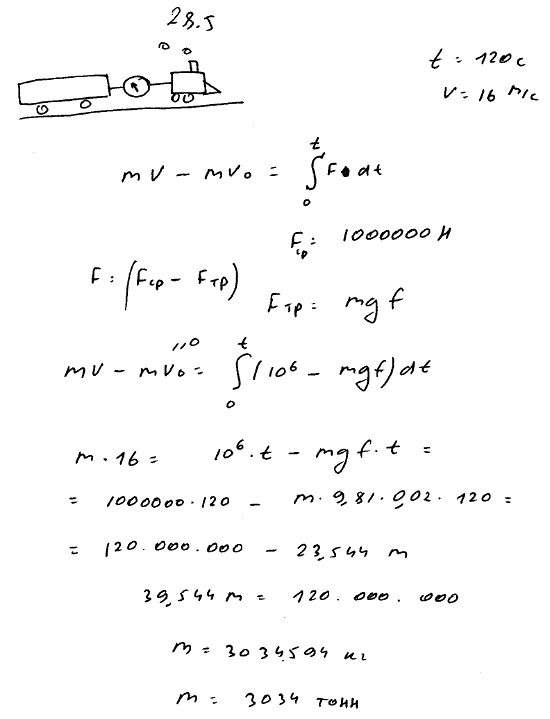 28.5
t = 120 с
V = 16 м/с
mV - mV₀ = ∫₀ᵗ F • dt
Fср = 1000000 Н
F = (Fср - Fтр)
Fтр = mgf
mV - mV₀ = ∫₀ᵗ (10⁶ - mgf) dt
"0
m · 16 = 10⁶ · t - mgf · t =
= 1000000 · 120 - m · 9,81 · 0,02 · 120 =
= 120.000.000 - 23,544 m
39,544 m = 120.000.000
m = 3034594 кг
m = 3034 тонн